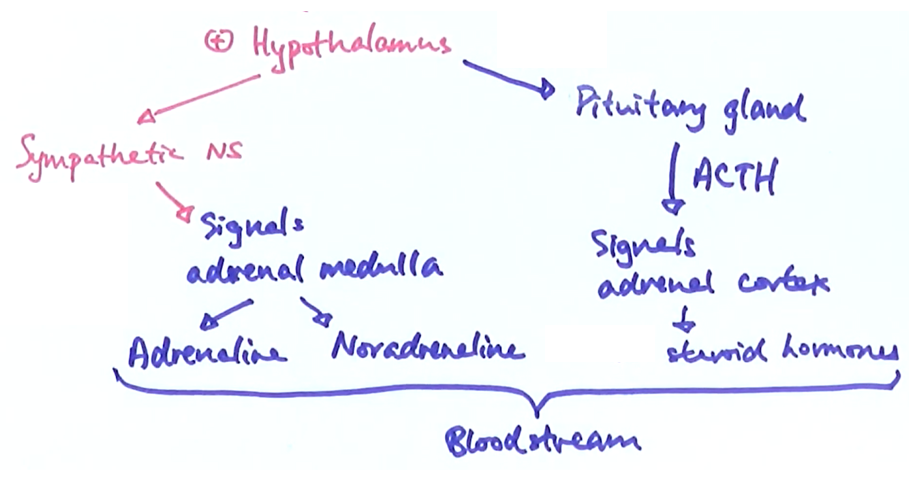 ⊕ Hypothalamus
Pituitary gland
Sympathetic NS
ACTH
Signals
adrenal medulla
Signals
adrenal cortex
Adrenaline
Noradrenaline
steroid hormones
Bloodstream